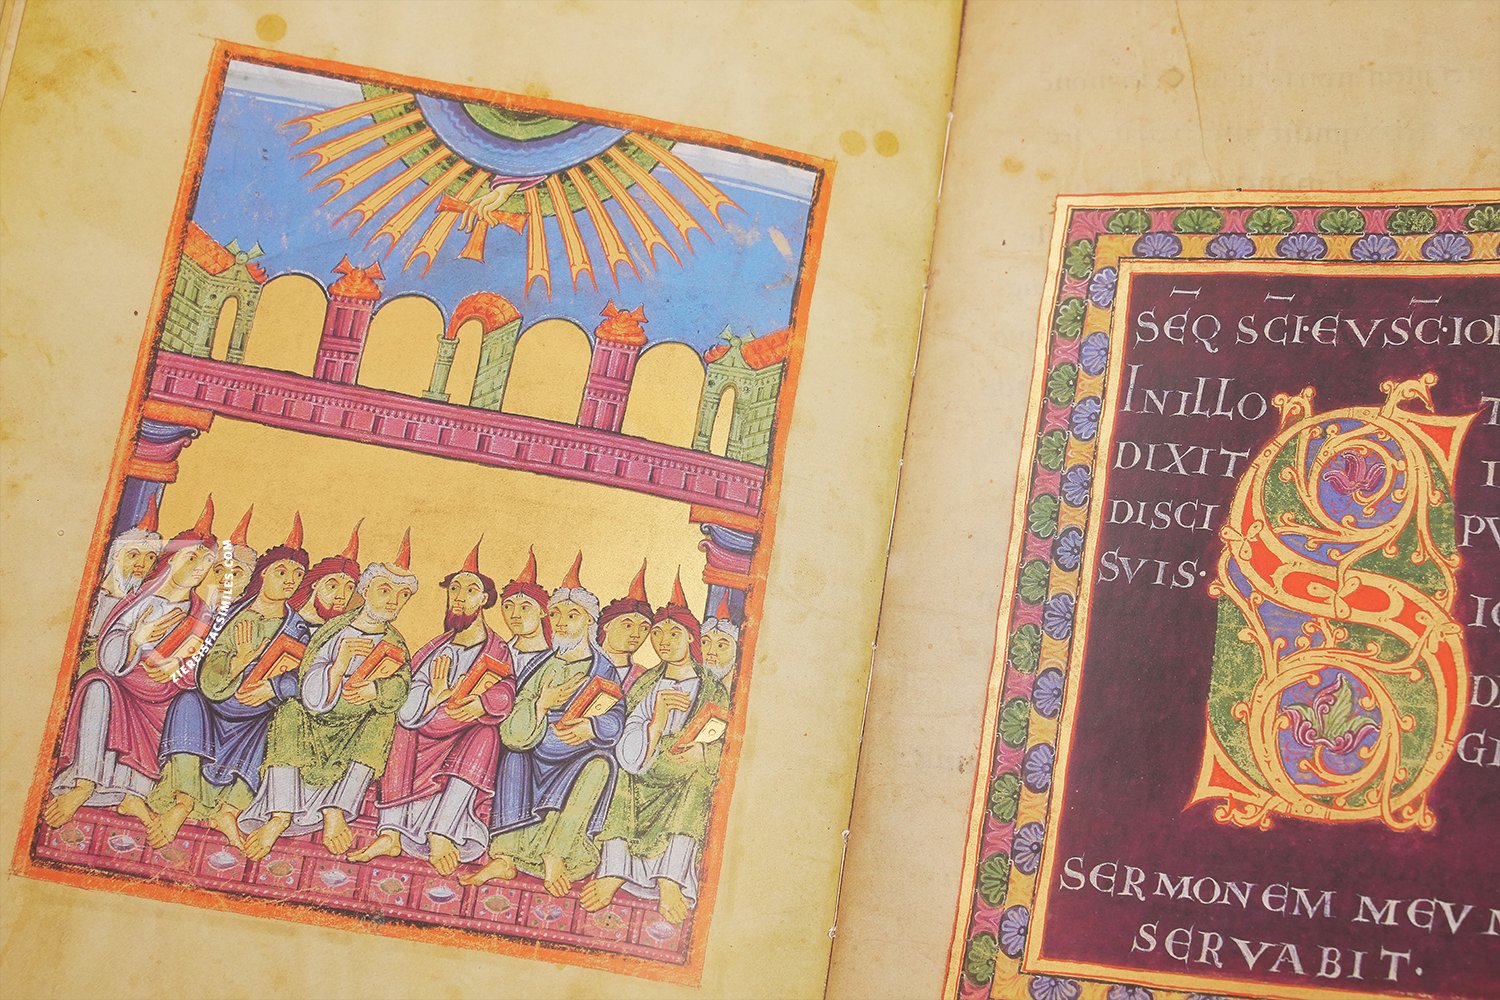 ZIEREISFACSIMILES.COM
SEQ SCI·EVSC·IOH
INILLO T
DIXIT I
DISCI PV
SVIS· IC
S
DI
GI
SERMONEM MEVM
SERVABIT·